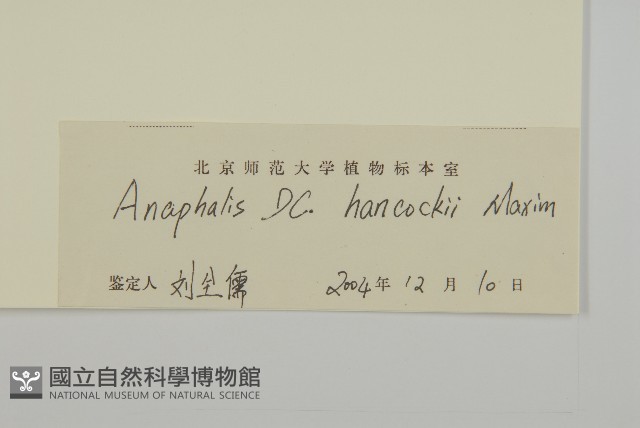 北京师范大学植物标本室
Anaphalis DC. hancockii Maxim
鉴定人 刘全儒 2004年 12月 10日
國立自然科學博物館
NATIONAL MUSEUM OF NATURAL SCIENCE